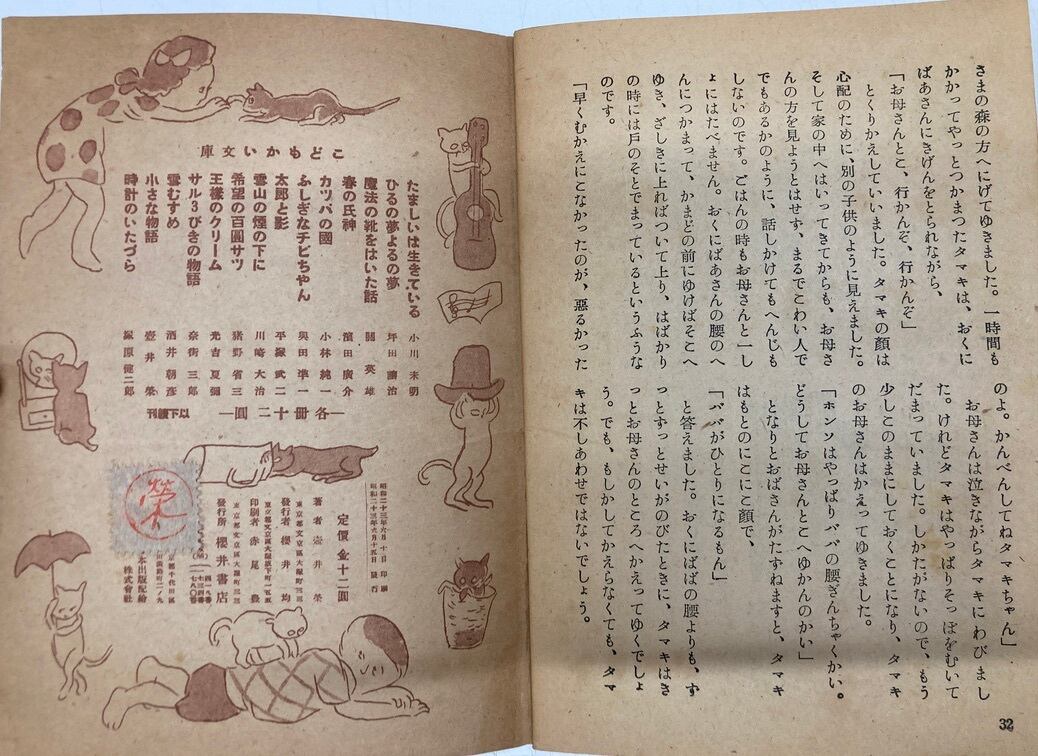 さまの森の方へにげてゆきました。一時間も
かかってやっとつかまつたタマキは、おくに
ばあさんにきげんをとられながら、
「お母さんとこ、行かんぞ、行かんぞ」
とくりかえしていいました。タマキの顏は
心配のために、別の子供のように見えました。
そして家の中へはいってきてからも、お母さ
んの方を見ようとはせず、まるでこわい人で
でもあるかのように、話しかけてもへんじも
しないのです。ごはんの時もお母さんと一し
よにはたべません。おくにばあさんの腰のへ
んにつかまって、かまどの前にゆけばそこへ
ゆき、ざしきに上ればついて上り、はばかり
の時には戸のそとでまっているというふうな
のです。
「早くむかえにこなかったのが、惡るかった
のよ。かんべんしてねタマキちゃん」
お母さんは泣きながらタマキにわびまし
た。けれどタマキはやっぱりそっぽをむいて
だまっていました。しかたがないので、もう
少しこのままにしておくことになり、タマキ
のお母さんはかえってゆきました。
「ホンソはやっぱりババの腰ぎんちゃくかい。
どうしてお母さんとこへゆかんのかい」
となりとおばさんがたずねますと、タマキ
はもとのにこにこ顏で、
「ババがひとりになるもん」
と答えました。おくにばばの腰よりも、す
っとすっとせいがのびたときに、タマキはき
っとお母さんのところへかえってゆくでしょ
う。でも、もしかしてかえらなくても、タマ
キは不しあわせではないでしょう。
32
こどもかい文庫
たましいは生きている 小川未明
ひるの夢よるの夢 坪田讓治
魔法の靴をはいた話 關英雄
春の氏神 濱田廣介
カツパの國 小林純一
ふしぎなチビちやん 奥田準一
太郎と影 平塚武二
雪山の煙の下に 川崎大治
希望の百圓サツ 猪野省三
王樣のクリーム 光吉夏彌
サル3びきの物語 奈街三郎
雪むすめ 酒井朝彦
小さな物語 壺井榮
時計のいたづら 塚原健二郎
―各册十二圓―
以下續刊
昭和二十三年六月十日印刷
昭和二十三年六月十五日發行
定價金十二圓
著者 壺井榮
發行者 櫻井均
印刷者 赤尾
發行所 櫻井書店
榮